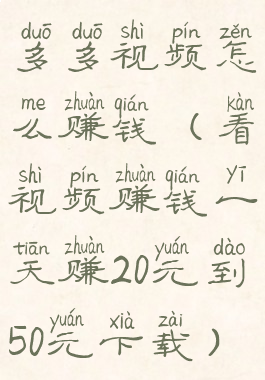 duō duō shì pín zěn
多多视频怎
me zhuàn qián kàn
么赚钱（看
shì pín zhuàn qián yī
视频赚钱一
tiān zhuàn yuán dào
天赚20元到
yuán xià zài
50元下载）